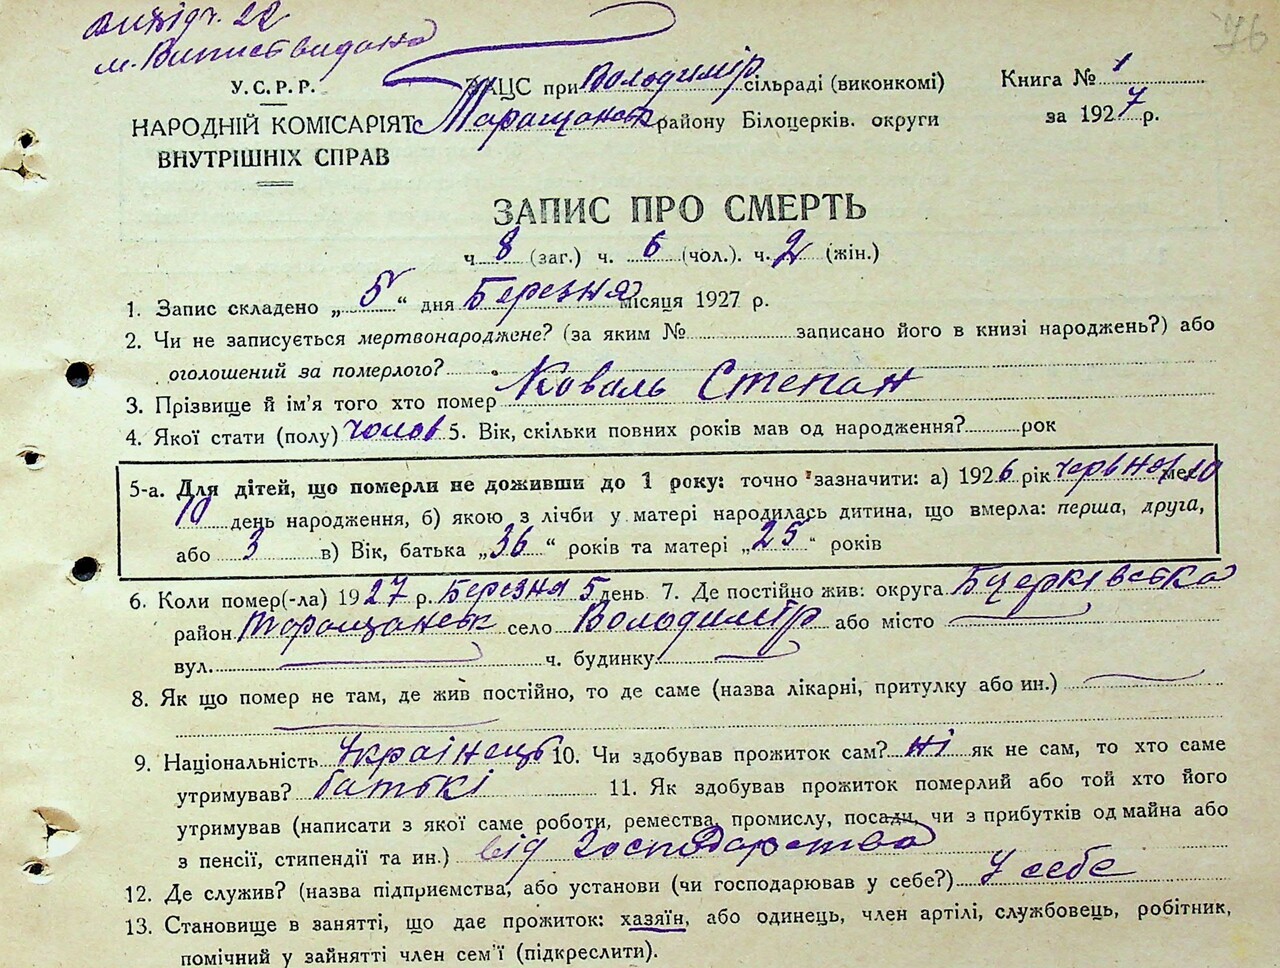 22
м. Випист видано
76
У.С.Р.Р.
НАРОДНІЙ КОМІСАРІЯТ
ВНУТРІШНІХ СПРАВ
ЗАЦС при Володимір сільраді (виконкомі)
Таращанськ району Білоцерків. округи
Книга № 1
за 1927 р.
ЗАПИС ПРО СМЕРТЬ
ч 8 (заг.) ч. 6 (чол.). ч. 2 (жін.)
1. Запис складено „ 5 “ дня Березня місяця 1927 р.
2. Чи не записується мертвонароджене? (за яким № записано його в книзі народжень?) або
оголошений за померлого?
3. Прізвище й ім'я того хто помер Коваль Степан
4. Якої стати (полу) чолов 5. Вік, скільки повних років мав од народження? рок
5-а. Для дітей, що померли не доживши до 1 року: точно зазначити: а) 1926 рік червня мес 10
10 день народження, б) якою з лічби у матері народилась дитина, що вмерла: перша, друга,
або 3 в) Вік, батька „ 36 “ років та матері „ 25 “ років
6. Коли помер(-ла) 1927 р. Березня 5 день 7. Де постійно жив: округа Бцерківська
район Таращанськ село Володимір або місто
вул. ч. будинку
8. Як що помер не там, де жив постійно, то де саме (назва лікарні, притулку або ин.)
9. Національність Українець 10. Чи здобував прожиток сам? ні як не сам, то хто саме
утримував? батькі 11. Як здобував прожиток померлий або той хто його
утримував (написати з якої саме роботи, ремества, промислу, посади, чи з прибутків од майна або
з пенсії, стипендії та ин.) від господарства
12. Де служив? (назва підприємства, або установи (чи господарював у себе?) У себе
13. Становище в занятті, що дає прожиток: хазяїн, або одинець, член артілі, службовець, робітник,
помічний у зайнятті член сем'ї (підкреслити).